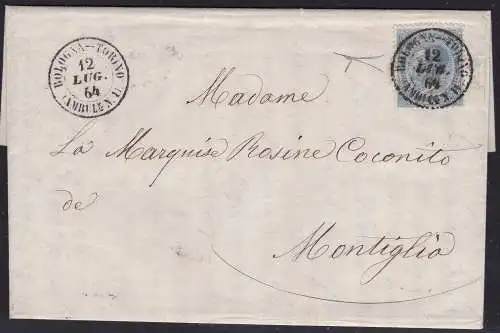 BOLOGNA—TORINO
12
LUG.
64
AMBUL.
BOLOGNA—TORINO
12
LUG.
64
AMBUL.
Madame
La Marquise Rosine Coconito
de
Montiglio